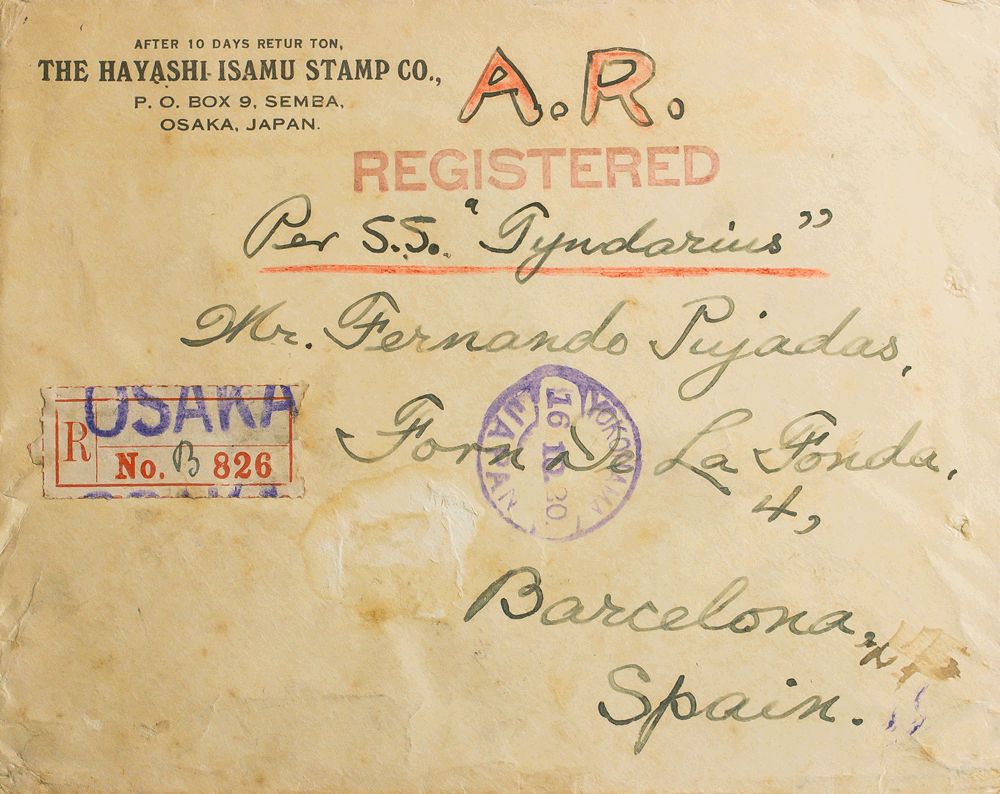 AFTER 10 DAYS RETUR TON,
THE HAYASHI ISAMU STAMP CO.,
P. O. BOX 9, SEMBA,
OSAKA, JAPAN.
A.R.
REGISTERED
Per S.S. "Tyndarius"
Mr. Fernando Pujadas,
OSAKA
R
No. B 826
OSAKA
YOKOHAMA
16 11.30.
JAPAN
Forn De La Fonda,
4,
Barcelona,
Spain.